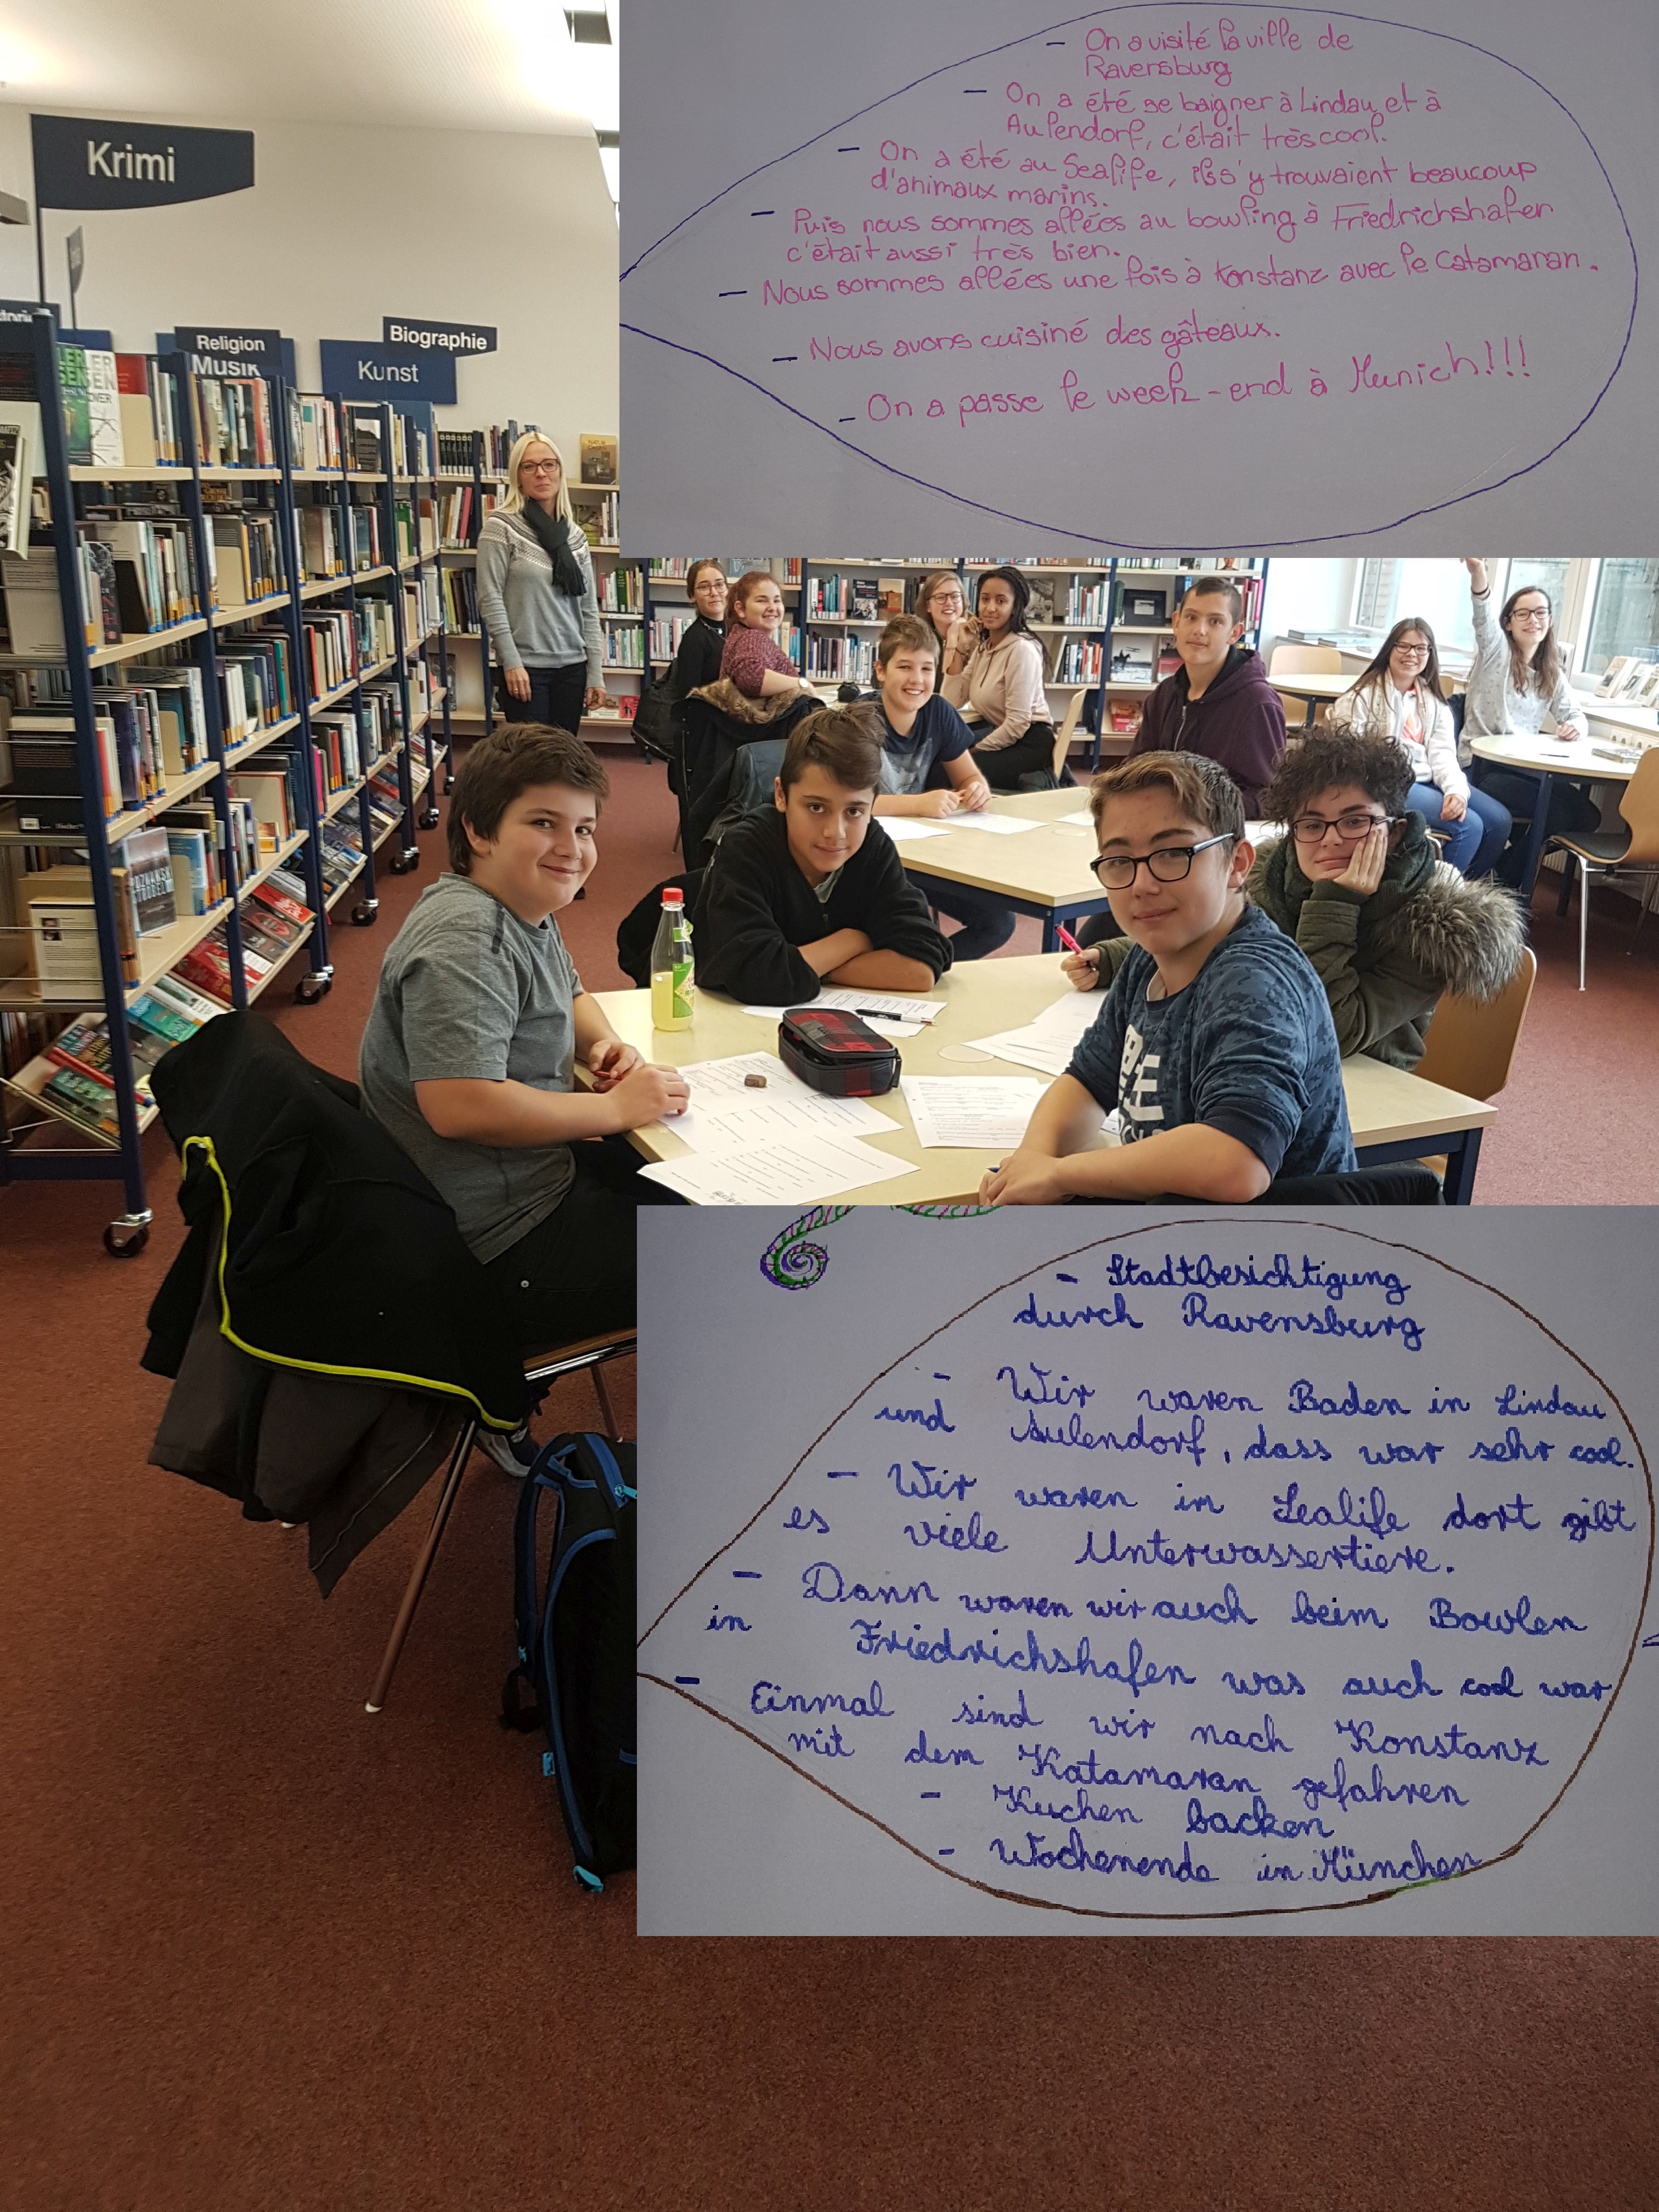 Krimi
Religion
Musik
Biographie
Kunst
- On a visité la ville de
Raversburg
- On a été se baigner à Lindau et à
Aulendorf, c'était très cool.
- On a été au Sealife, ils s'y trouvaient beaucoup
d'animaux marins.
- Puis nous sommes allées au bowling à Friedrichshafen
c'était aussi très bien.
- Nous sommes allées une fois à Konstanz avec le Catamaran.
- Nous avons cuisiné des gâteaux.
- On a passe le week-end à Munich!!!
- Stadtbesichtigung
durch Ravensburg
- Wir waren Baden in Lindau
und Aulendorf, dass war sehr cool.
- Wir waren im Sealife dort gibt
es viele Unterwassertiere.
- Dann waren wir auch beim Bowlen
in Friedrichshafen was auch cool war
- Einmal sind wir nach Konstanz
mit dem Katamaran gefahren
- Kuchen backen
- Wochenende in München